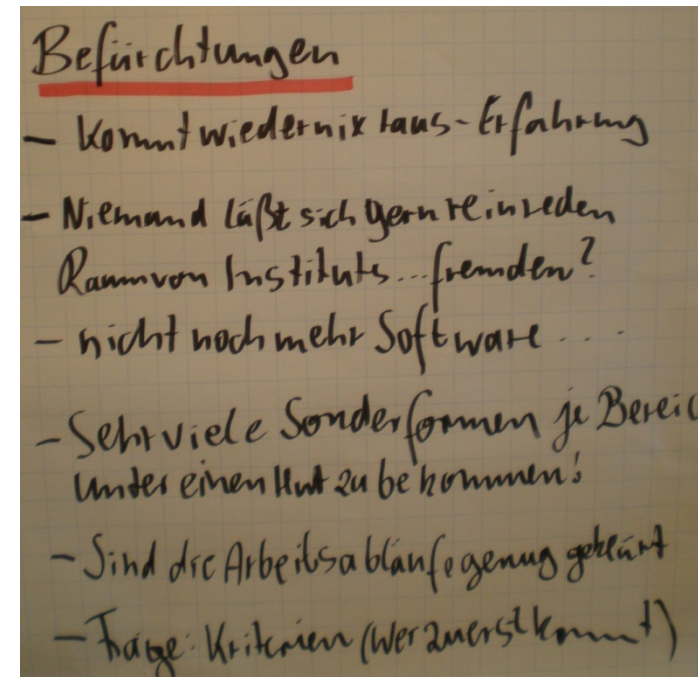 Befürchtungen
- Kommt wieder nix raus - Erfahrung
- Niemand läßt sich gern reinreden
Raum von Instituts...fremden?
- nicht noch mehr Software ....
- Sehr viele Sonderformen je Bereic
unter einen Hut zu bekommen!
- Sind die Arbeitsabläufe genug geklärt
- Frage: Kriterien (wer zuerst kommt)